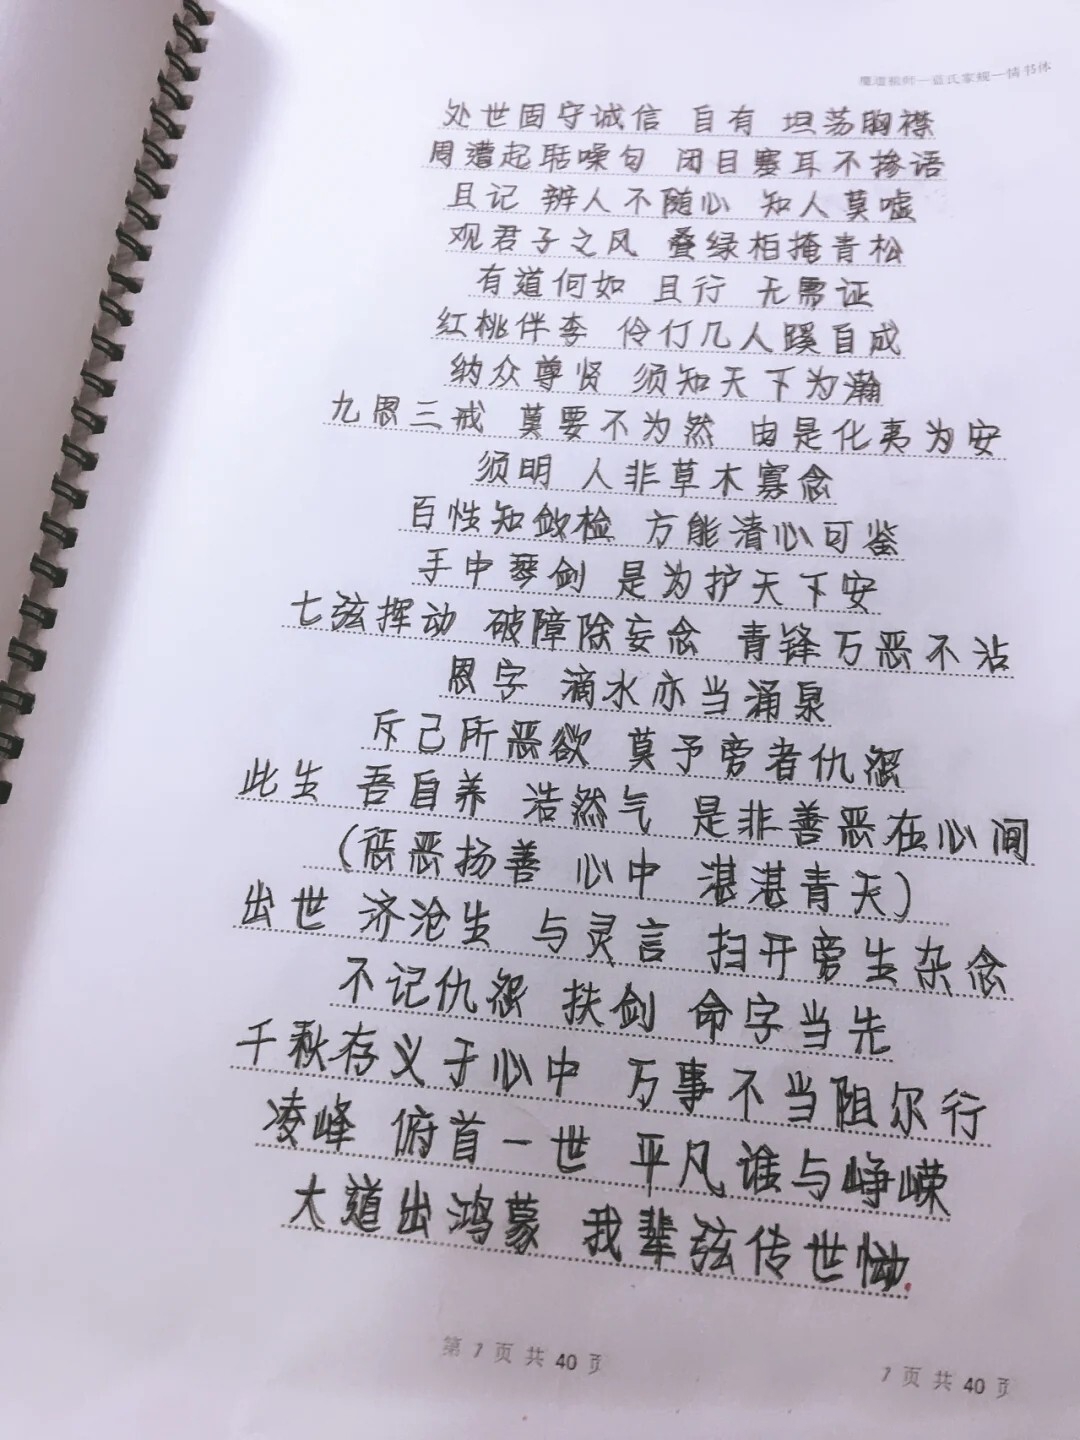 魔道祖师—蓝氏家规—情书体
处世固守诚信 自有 坦荡胸襟
周遭起聒噪句 闭目塞耳不掺语
且记 辨人不随心 知人莫嘘
观君子之风 叠绿柏掩青松
有道何如 且行 无需证
红桃伴李 伶仃几人蹊自成
纳众尊贤 须知天下为瀚
九思三戒 莫要不为然 由是化夷为安
须明 人非草木寡念
百性知敛检 方能清心可鉴
手中琴剑 是为护天下安
七弦挥动 破障除妄念 青锋万恶不沾
恩字 滴水亦当涌泉
斥己所恶欲 莫予旁者仇怨
此生 吾自养 浩然气 是非善恶在心间
(惩恶扬善 心中 湛湛青天)
出世 济沧生 与灵言 扫开旁生杂念
不记仇怨 扶剑 命字当先
千秋存义于心中 万事不当阻尔行
凌峰 俯首一世 平凡谁与峥嵘
大道出鸿蒙 我辈弦传世恸
第 7 页 共 40 页
7 页 共 40 页